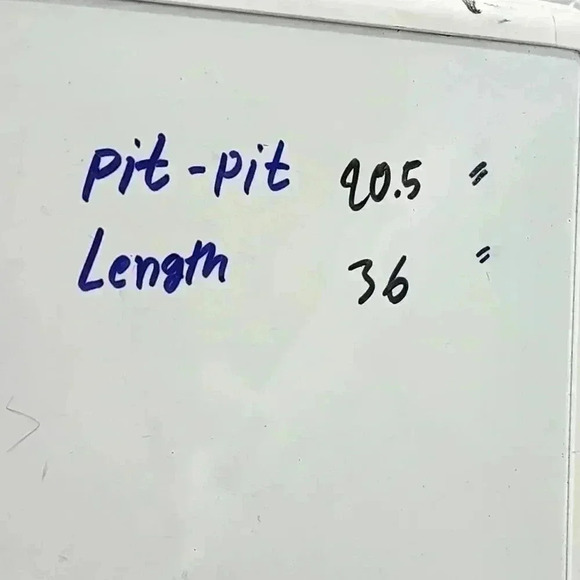 Pit-pit 20.5 "
Length 36 "